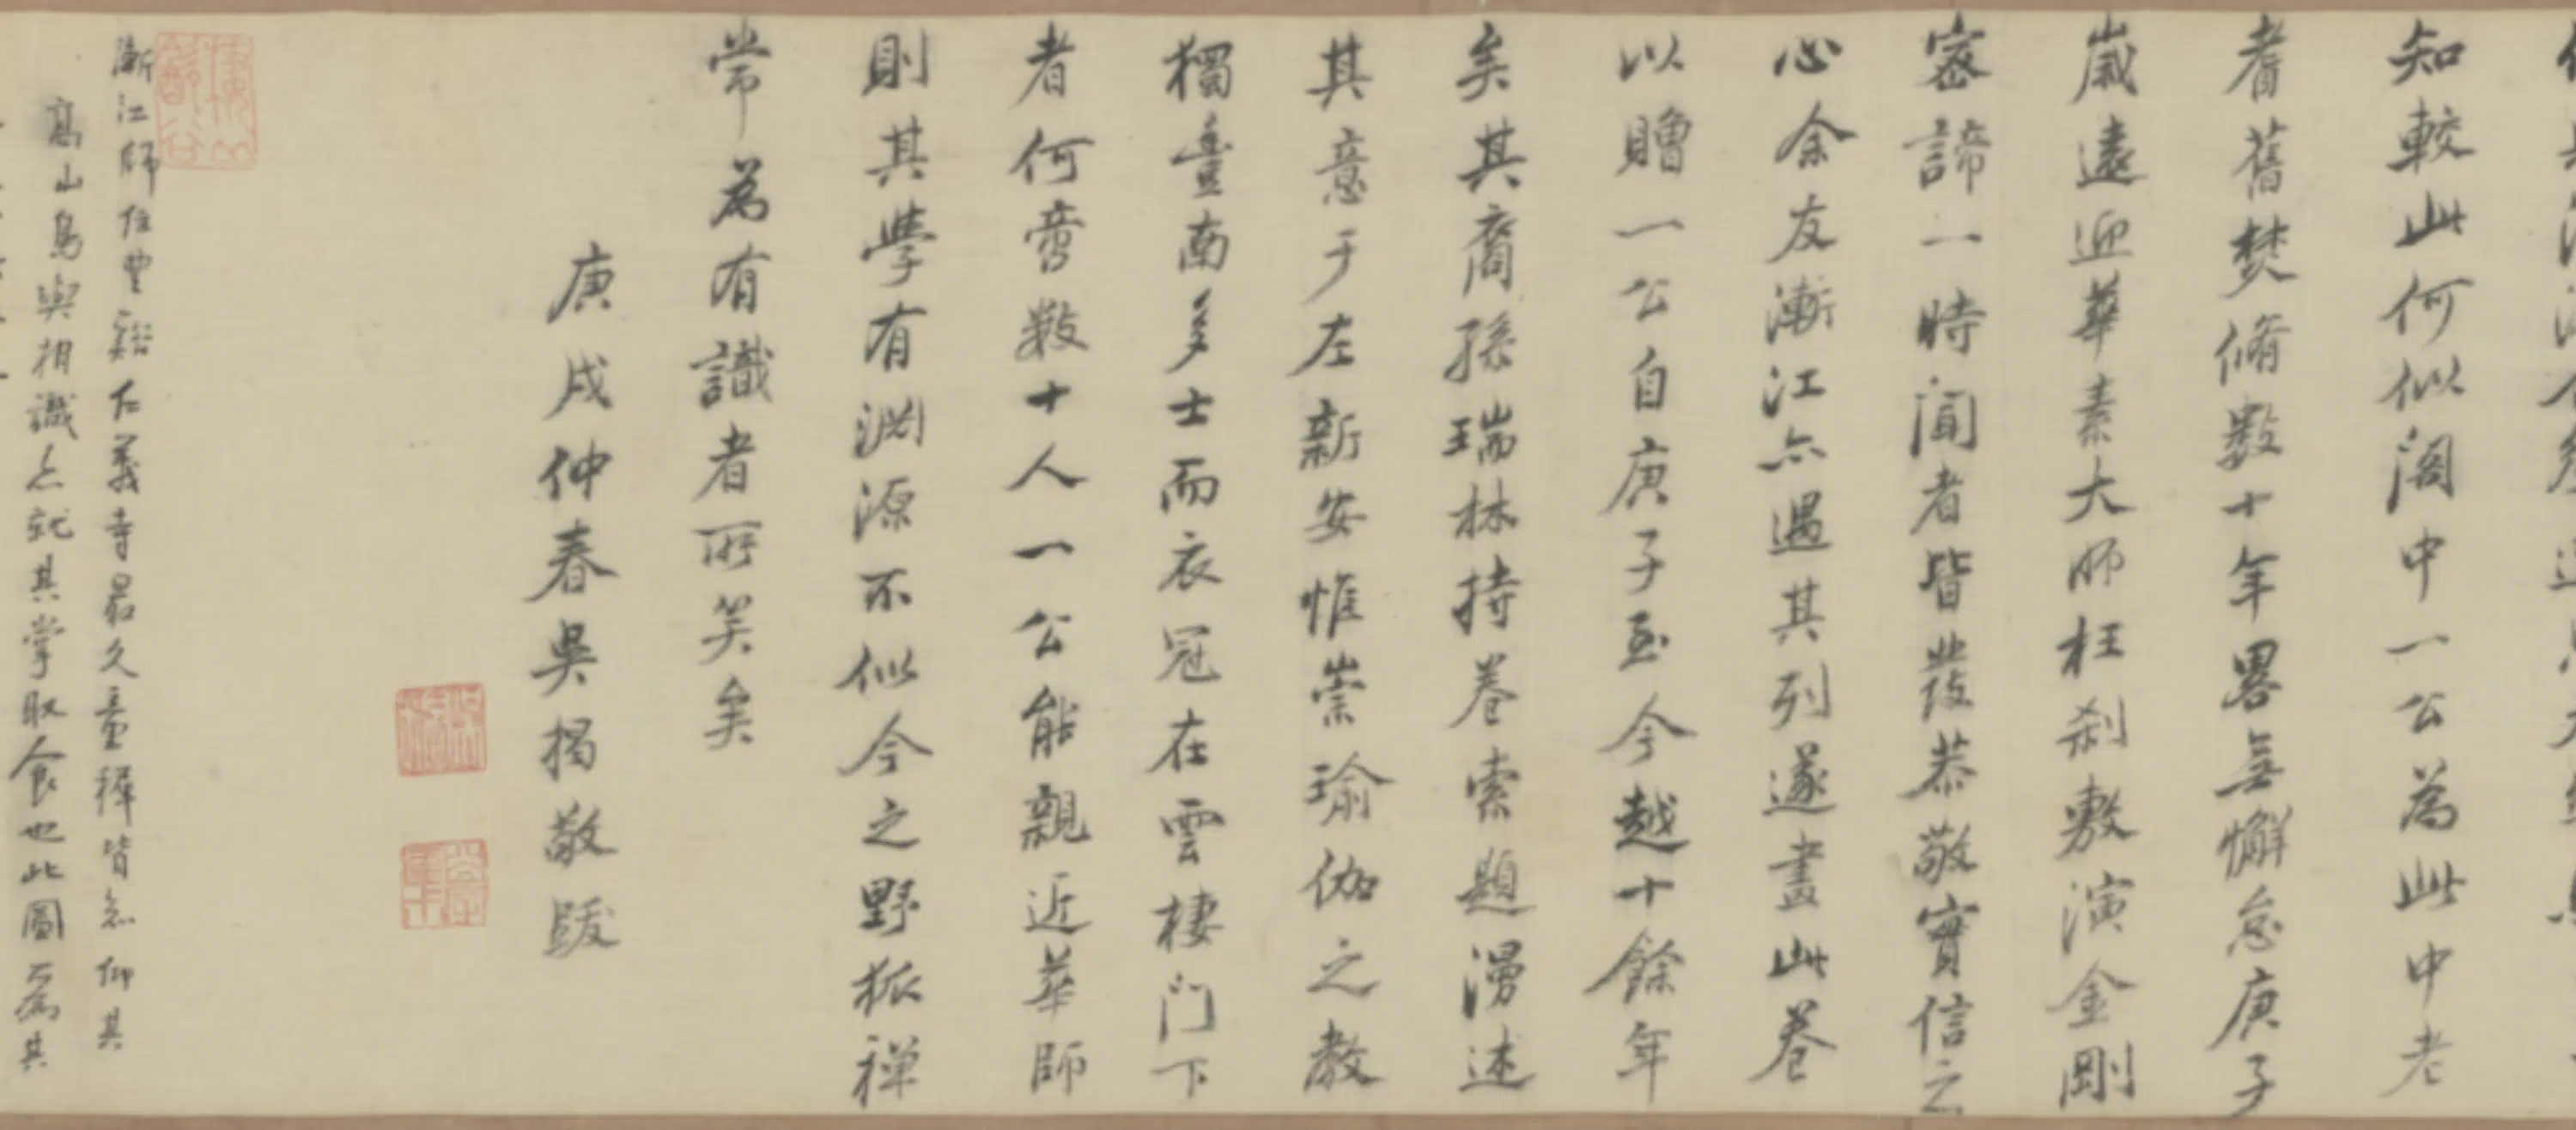 知較此何似閣中一公為此中老
耆舊焚脩數十年畧無懈怠庚子
歲遠迎華素大師枉刹敷演金剛
密諦一時聞者皆發恭敬實信之
心余友漸江亦過其列遂畫此卷
以贈一公自庚子至今越十餘年
矣其裔孫瑞林持卷索題漫述
其意于左新安惟崇瑜伽之教
獨豊南多士而衣冠在雲棲門下
者何啻數十人一公能親近華師
則其學有淵源不似今之野狐禅
常為有識者所笑矣
庚戌仲春吳揭敬跋
漸江師住豐谿仁義寺最久童稺皆知仰其
高山鳥與相識亦就其掌取食也此圖為其